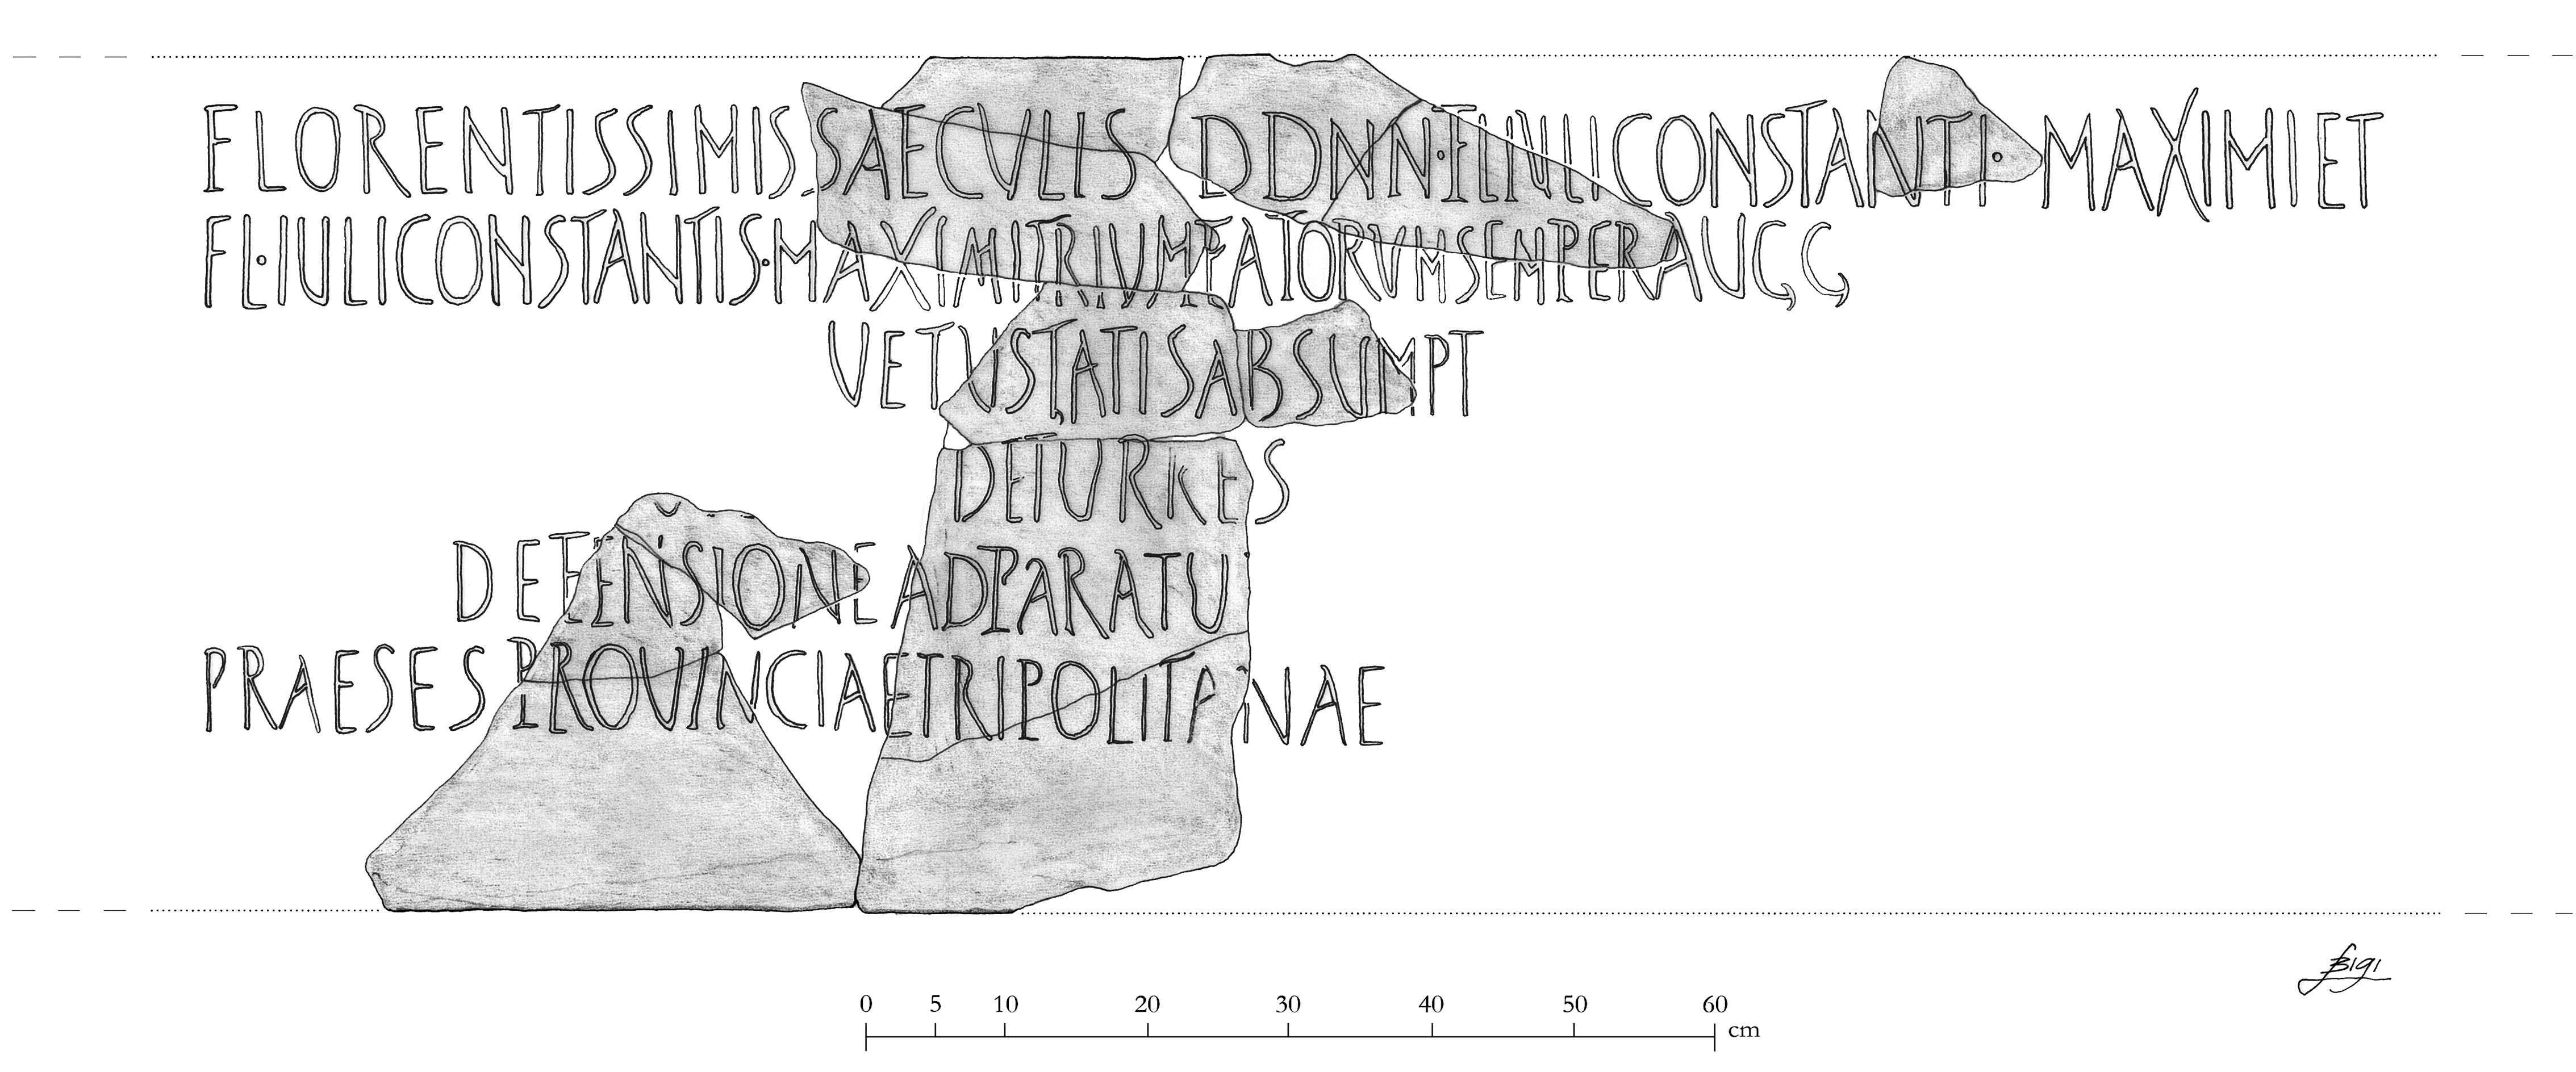 FLORENTISSIMIS SAECULIS D D N N · FL IULI CONSTANTI · MAXIMI ET
FL · IULI CONSTANTIS · MAXIMI TRIUMFATORVM SEMPER AUGG
VETUSTATIS ABSUMPT
DETURRES
DEFENSIONE ADPARATU
PRAESES PROUINCIAE TRIPOLITANAE
0 5 10 20 30 40 50 60 cm
Bigi